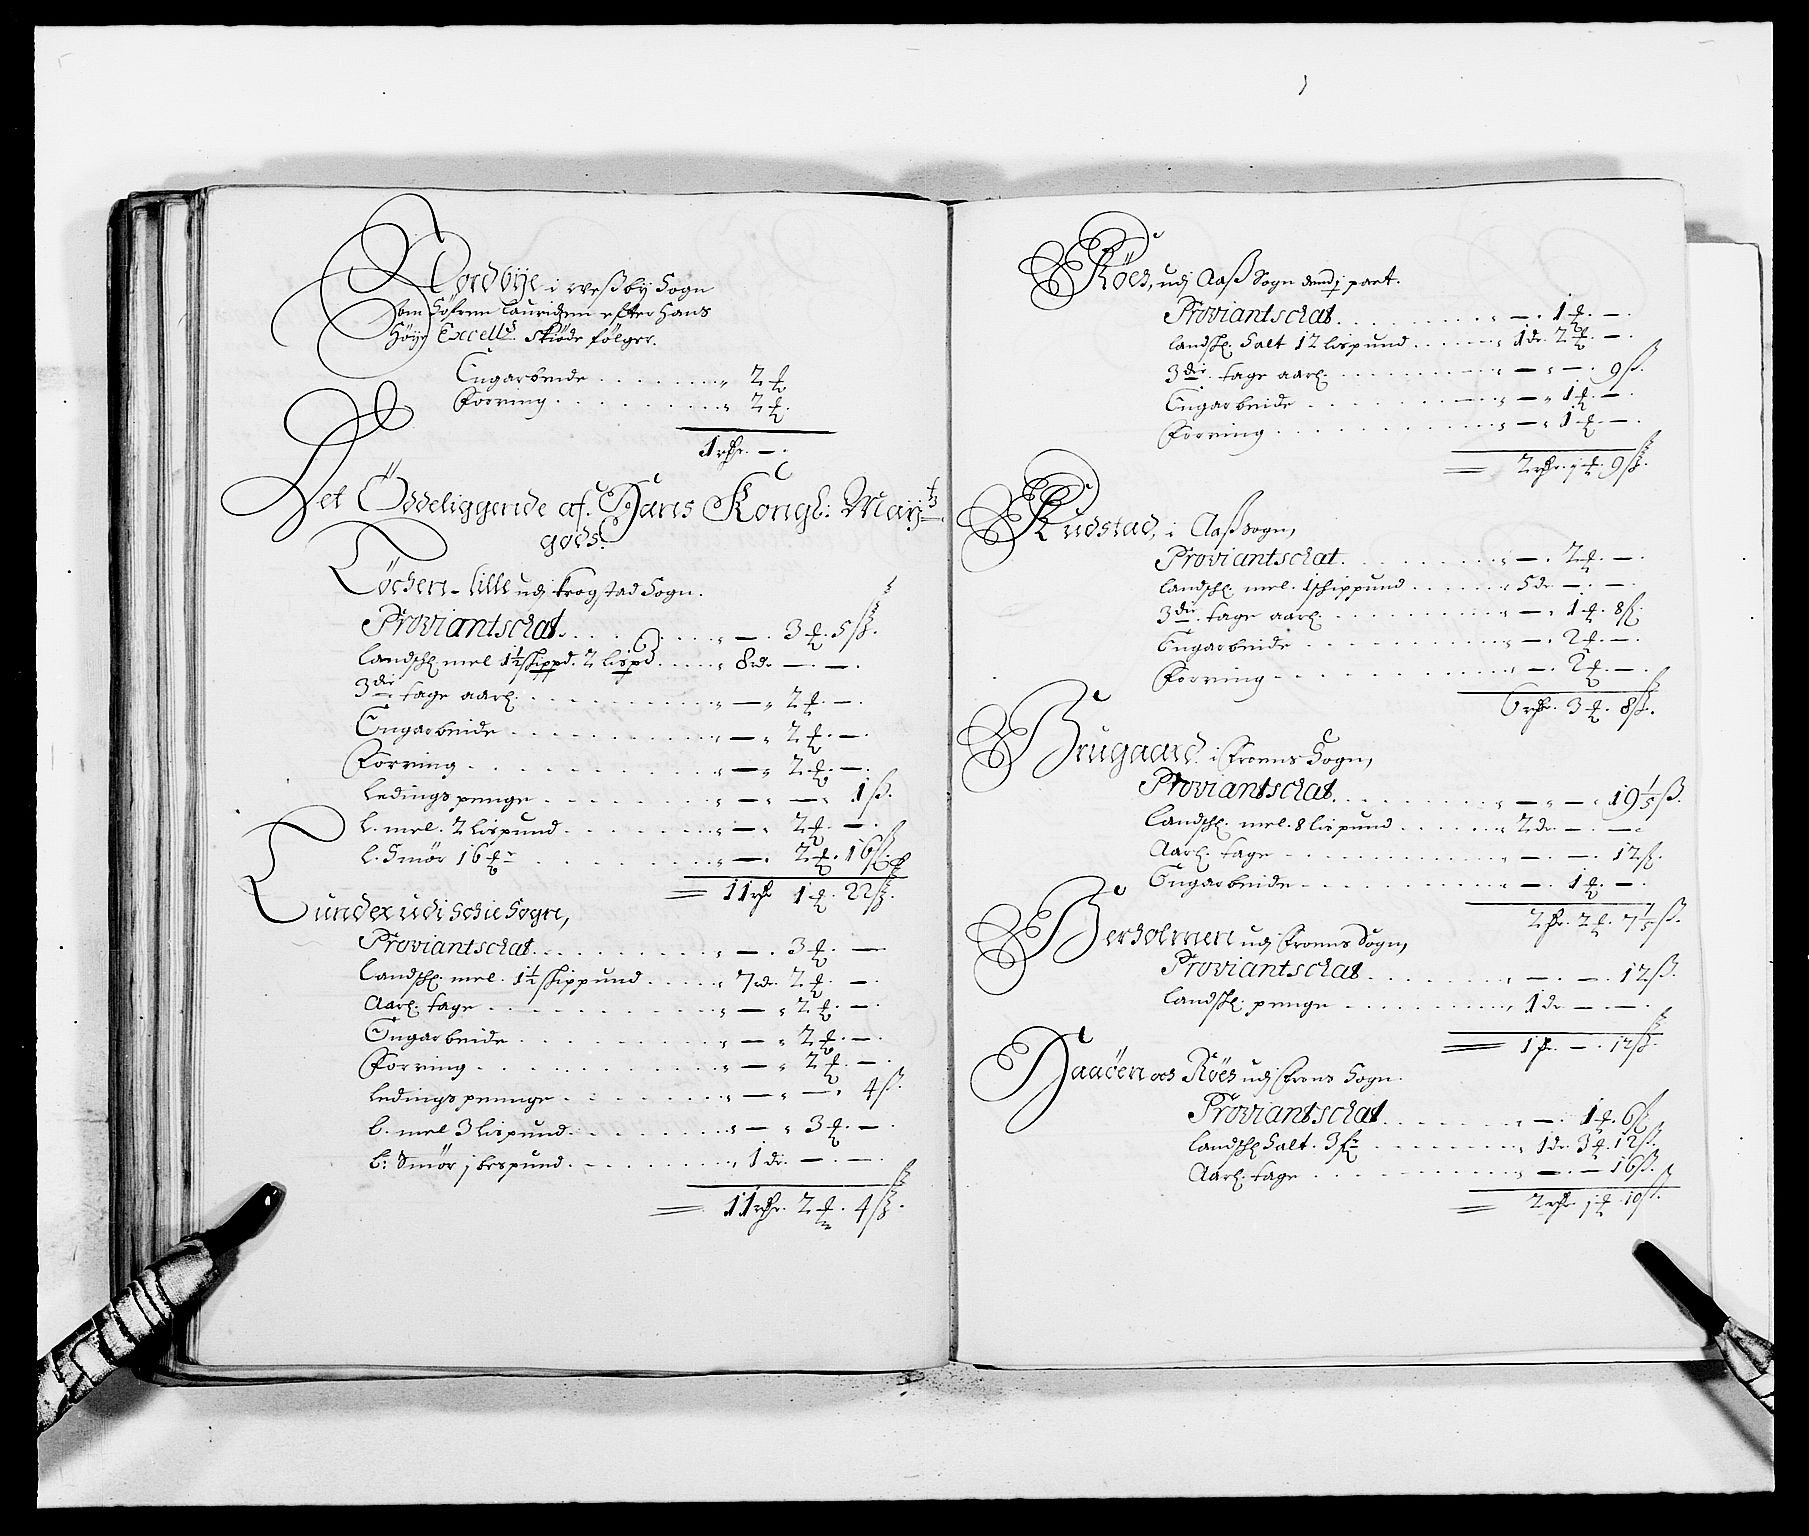 Nordbÿe i Weßbÿ Sogn
som Söfren Lauridsen efter Hans
Höÿe Excell:s Skiöde fölger.
Engarbeide . . . . . . . „ 2 ℔
Forring . . . . . . . . „ 2 ℔.
1 rdr. — .
Det Öddeliggende af. Hans Kongl: Maÿ:tz
gods.
Töchen-lille udj Krogstad Sogn.
Proviantschat. . . . . . . . „ — . 3 ℔. 5 ß.
Landsch. mel 1½ schippd. 2 lispd . . . . „ 8 dr. — . — .
3die tage aarl. . . . . . . . „ — „ 2 ℔. — .
Engarbeide . . . . . . . . „ — „ 2 ℔. — .
Forring . . . . . . . . „ — „ 2 ℔. — .
Ledings penge . . . . . . . „ — „ — „ 1 ß.
L. mel. 2 lispund . . . . . . „ — „ 2 ℔. — .
L. Smör 16 . . . . . . . „ — . 2 ℔. 16 ß.
= 11 rdr 1 ℔. 22 ß.
Lunder udi Schie Sogn,
Proviantschat. . . . . . . . „ — . 3 ℔. —
Landsch. mel. 1½ schippund . . . . . „ 7 dr. 2 ℔. — .
Aarl. tage . . . . . . . . „ — „ 2 ℔. — .
Engarbeide . . . . . . . . „ — „ 2 ℔. — .
Forring . . . . . . . . „ — „ 2 ℔. — .
Ledings pennge . . . . . . . „ — „ — „ 4 ß.
L. mel 3 lispund. . . . . . . „ — „ 3 ℔. — .
L: Smör j bespund. . . . . . . „ 1 dr. — . — .
= 11 rdr. 2 ℔. 4 ß.
Röes, udj Aaß Sogn part.
Proviantschat . . . . . . . . „ — . 1 ℔. — .
Landsch. Salt 12 lispund . . . . . „ 1 dr. 2 ℔. — .
3die. tage aarl. . . . . . . . „ — „ — . 9 ß.
Engarbeide . . . . . . . . „ — „ 1 ℔. — .
Forring . . . . . . . . „ — „ 1 ℔. — .
= 2 rdr. j ℔. 9 ß.
Rudstad, i Aaß sogn,
Proviantschat. . . . . . . . „ — . 2 ℔. — .
Landsch. mel. 1 schippund . . . . . „ 5 dr. — . — .
3die. tage aarl. . . . . . . . „ — „ 1 ℔. 8 ß.
Engarbeide . . . . . . . . „ — . 2 ℔. — .
Forring . . . . . . . . „ — . 2 ℔. — .
6 rdr. 3 ℔. 8 ß.
Brugaard. i Froens Sogn,
Proviantschat. . . . . . . . „ — „ — „ 19 1/5 ß.
Landsch. mel. 8 lispund . . . . . . „ 2 dr. — . — .
Aarl. tage . . . . . . . . „ — . — . 12 ß.
Engarbeide . . . . . . . . „ — . 1 ℔. — .
2 dr. 2 ℔. 7 1/5 ß.
Berholmen udj Froens Sogn,
Proviantschat . . . . . . . . „ — . — . 12 ß.
Landsch. penge . . . . . . . . „ 1 dr. — . — .
= 1 dr. — . 12 ß.
Haaöen och Röes udj Frons Sogn.
Proviantschat . . . . . . . . „ — . 1 ℔. 6 ß
Landsch. Salt. 3 . . . . . . . „ 1 dr. 3 ℔. 12 ß.
Aarl. tage . . . . . . . . „ — . — 16 ß.
= 2 rdr. j ℔ 10 ß.